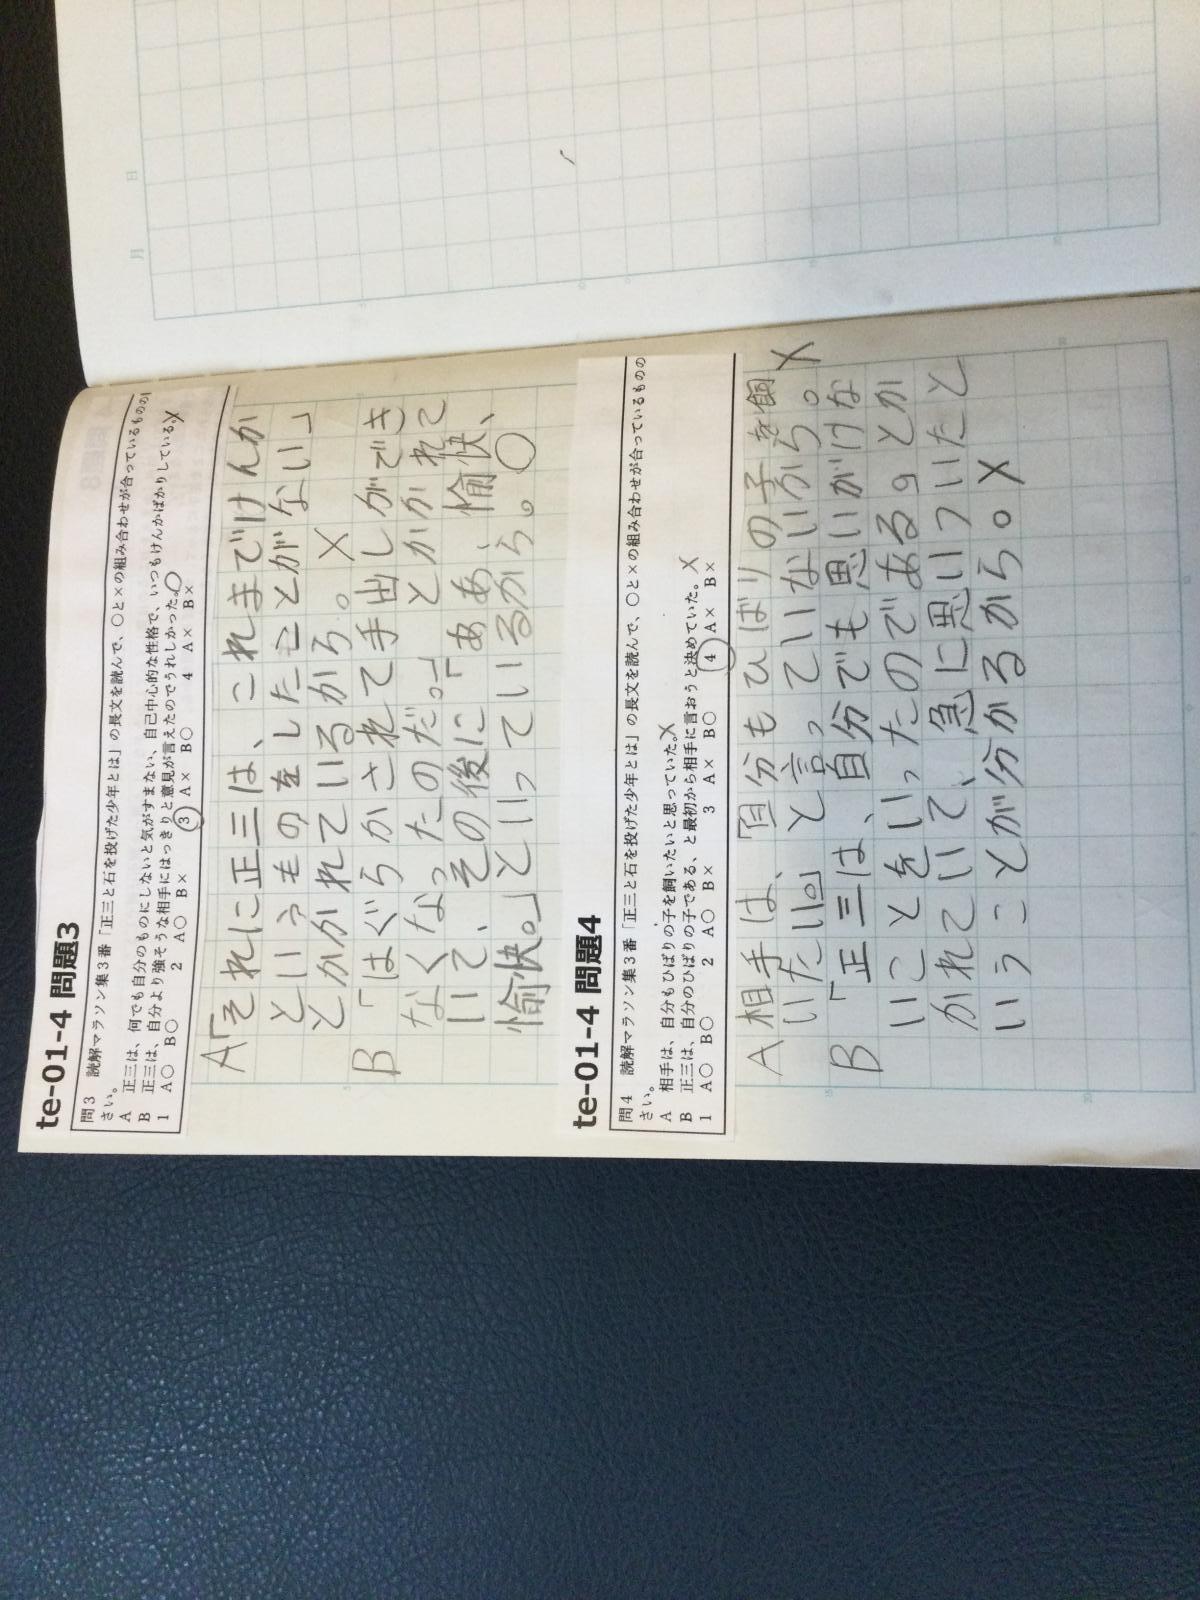 te-01-4 問題3
問3 読解マラソン集3番「正三と石を投げた少年とは」の長文を読んで、○と×の組み合わせが合っているものの
さい。
A 正三は、何でも自分のものにしないと気がすまない、自己中心的な性格で、いつもけんかばかりしている。×
B 正三は、自分より強そうな相手にはっきりと意見が言えたのでうれしかった。○
1 A○ B○ 2 A○ B× 3 A× B○ 4 A× B×
A「それに正三は、これまでけんか
というものをしたことがない」
とかかれているから。×
B「はぐらかされて手出しができ
なくなったのだ。」とかかれて
いて、その後に「ああ、愉快、
愉快。」といっているから。○
te-01-4 問題4
問4 読解マラソン集3番「正三と石を投げた少年とは」の長文を読んで、○と×の組み合わせが合っているものの
さい。
A 相手は、自分もひばりの子を飼いたいと思っていた。×
B 正三は、自分のひばりの子である、と最初から相手に言おうと決めていた。×
1 A○ B○ 2 A○ B× 3 A× B○ 4 A× B×
A 相手は、「自分もひばりの子を飼
いたい。」と言っていないから。×
B「正三は、自分でも思いがけな
いことをいったのである。」とか
かれていて、急に思いついたと
いうことが分かるから。×
月 日